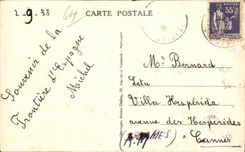 2-9-38
CARTE POSTALE
55c
Souvenir de la
Frontière d'Espagne
Michel
Mr Bernard
Villa Hespérida
avenue des Hespérides
Cannes
(A.M)